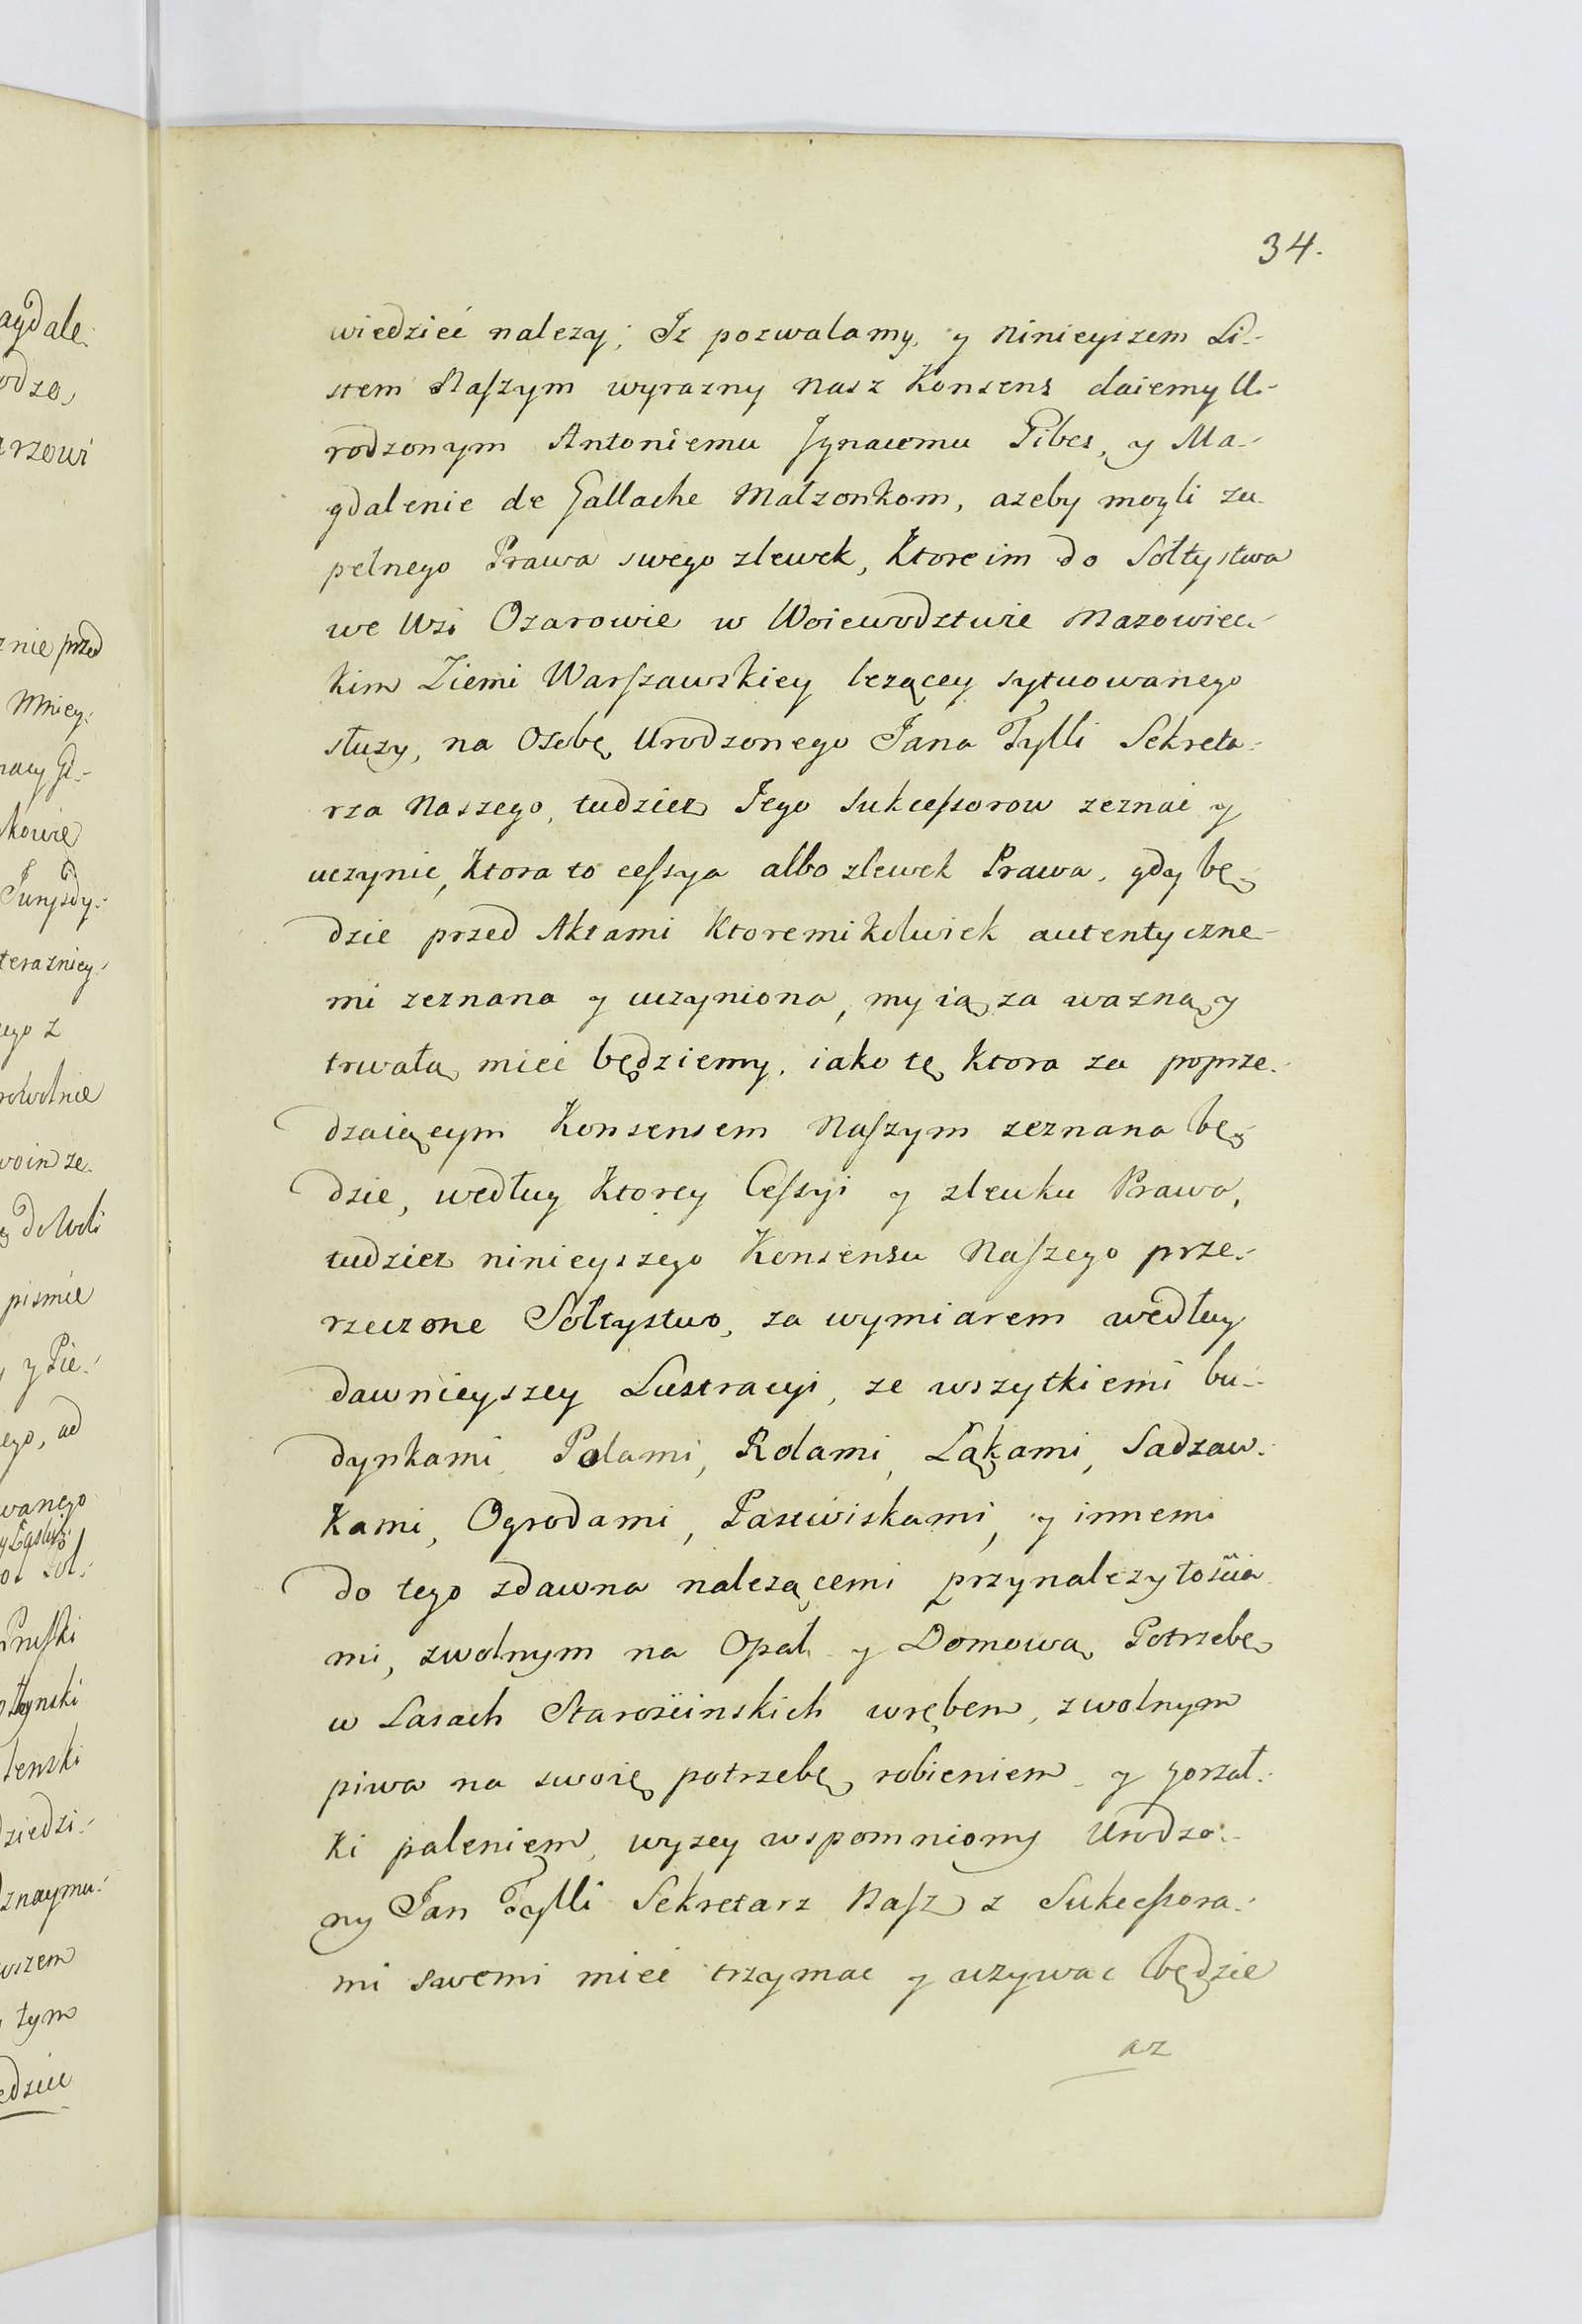 34.
wiedzieć nalezy; Iz pozwalamy, y ninieyszem Li-
stem Naszym wyrazny nasz Konsens daiemy U-
rodzonym Antoniemu Jgnacemu Pibes, y Ma-
gdalenie de Gallache Małzonkom, azeby mogli zu-
pełnego Prawa swego zlewek, Ktore im do Sołtystwa
we Wsi Ozarowie w Woiewodztwie Mazowiec-
kim Ziemi Warszawskiey lezącey sytuowanego
służy, na Osobę Urodzonego Jana Fylli Sekreta-
rza Naszego, tudziez Jego Sukcessorow zeznać y
uczynic, Ktora to cessya albo zlewek Prawa, gdy bę-
dzie przed Aktami Ktoremikolwiek autentyczne-
mi zeznana y uczyniona, my ią za wazną y
trwałą mieć będziemy, iako tę Ktora za poprze-
dzaiącym Konsensem Naszym zeznana bę-
dzie, według Ktorey Cessyi y zlewku Prawa,
tudziez ninieyszego Konsensu Naszego prze-
rzeczone Sołtystwo, za wymiarem według
dawnieyszey Lustracyi, ze wszytkiemi bu-
dynkami Polami, Rolami, Łąkami, Sadzaw-
kami, Ogrodami, Pastwiskami, y innemi
do tego zdawna nalezącemi przynalezytościa
mi, zwolnym na Opał y Domową Potrzebę
w Lasach Starościnskich wrębem, zwolnym
piwa na swoię potrzebę robieniem y gorzał-
ki paleniem, wyzey wspomniony Urodzo-
ny Jan Fylli Sekretarz Nasz z Sukcessora-
mi swemi mieć trzymac y uzywac będzie
az